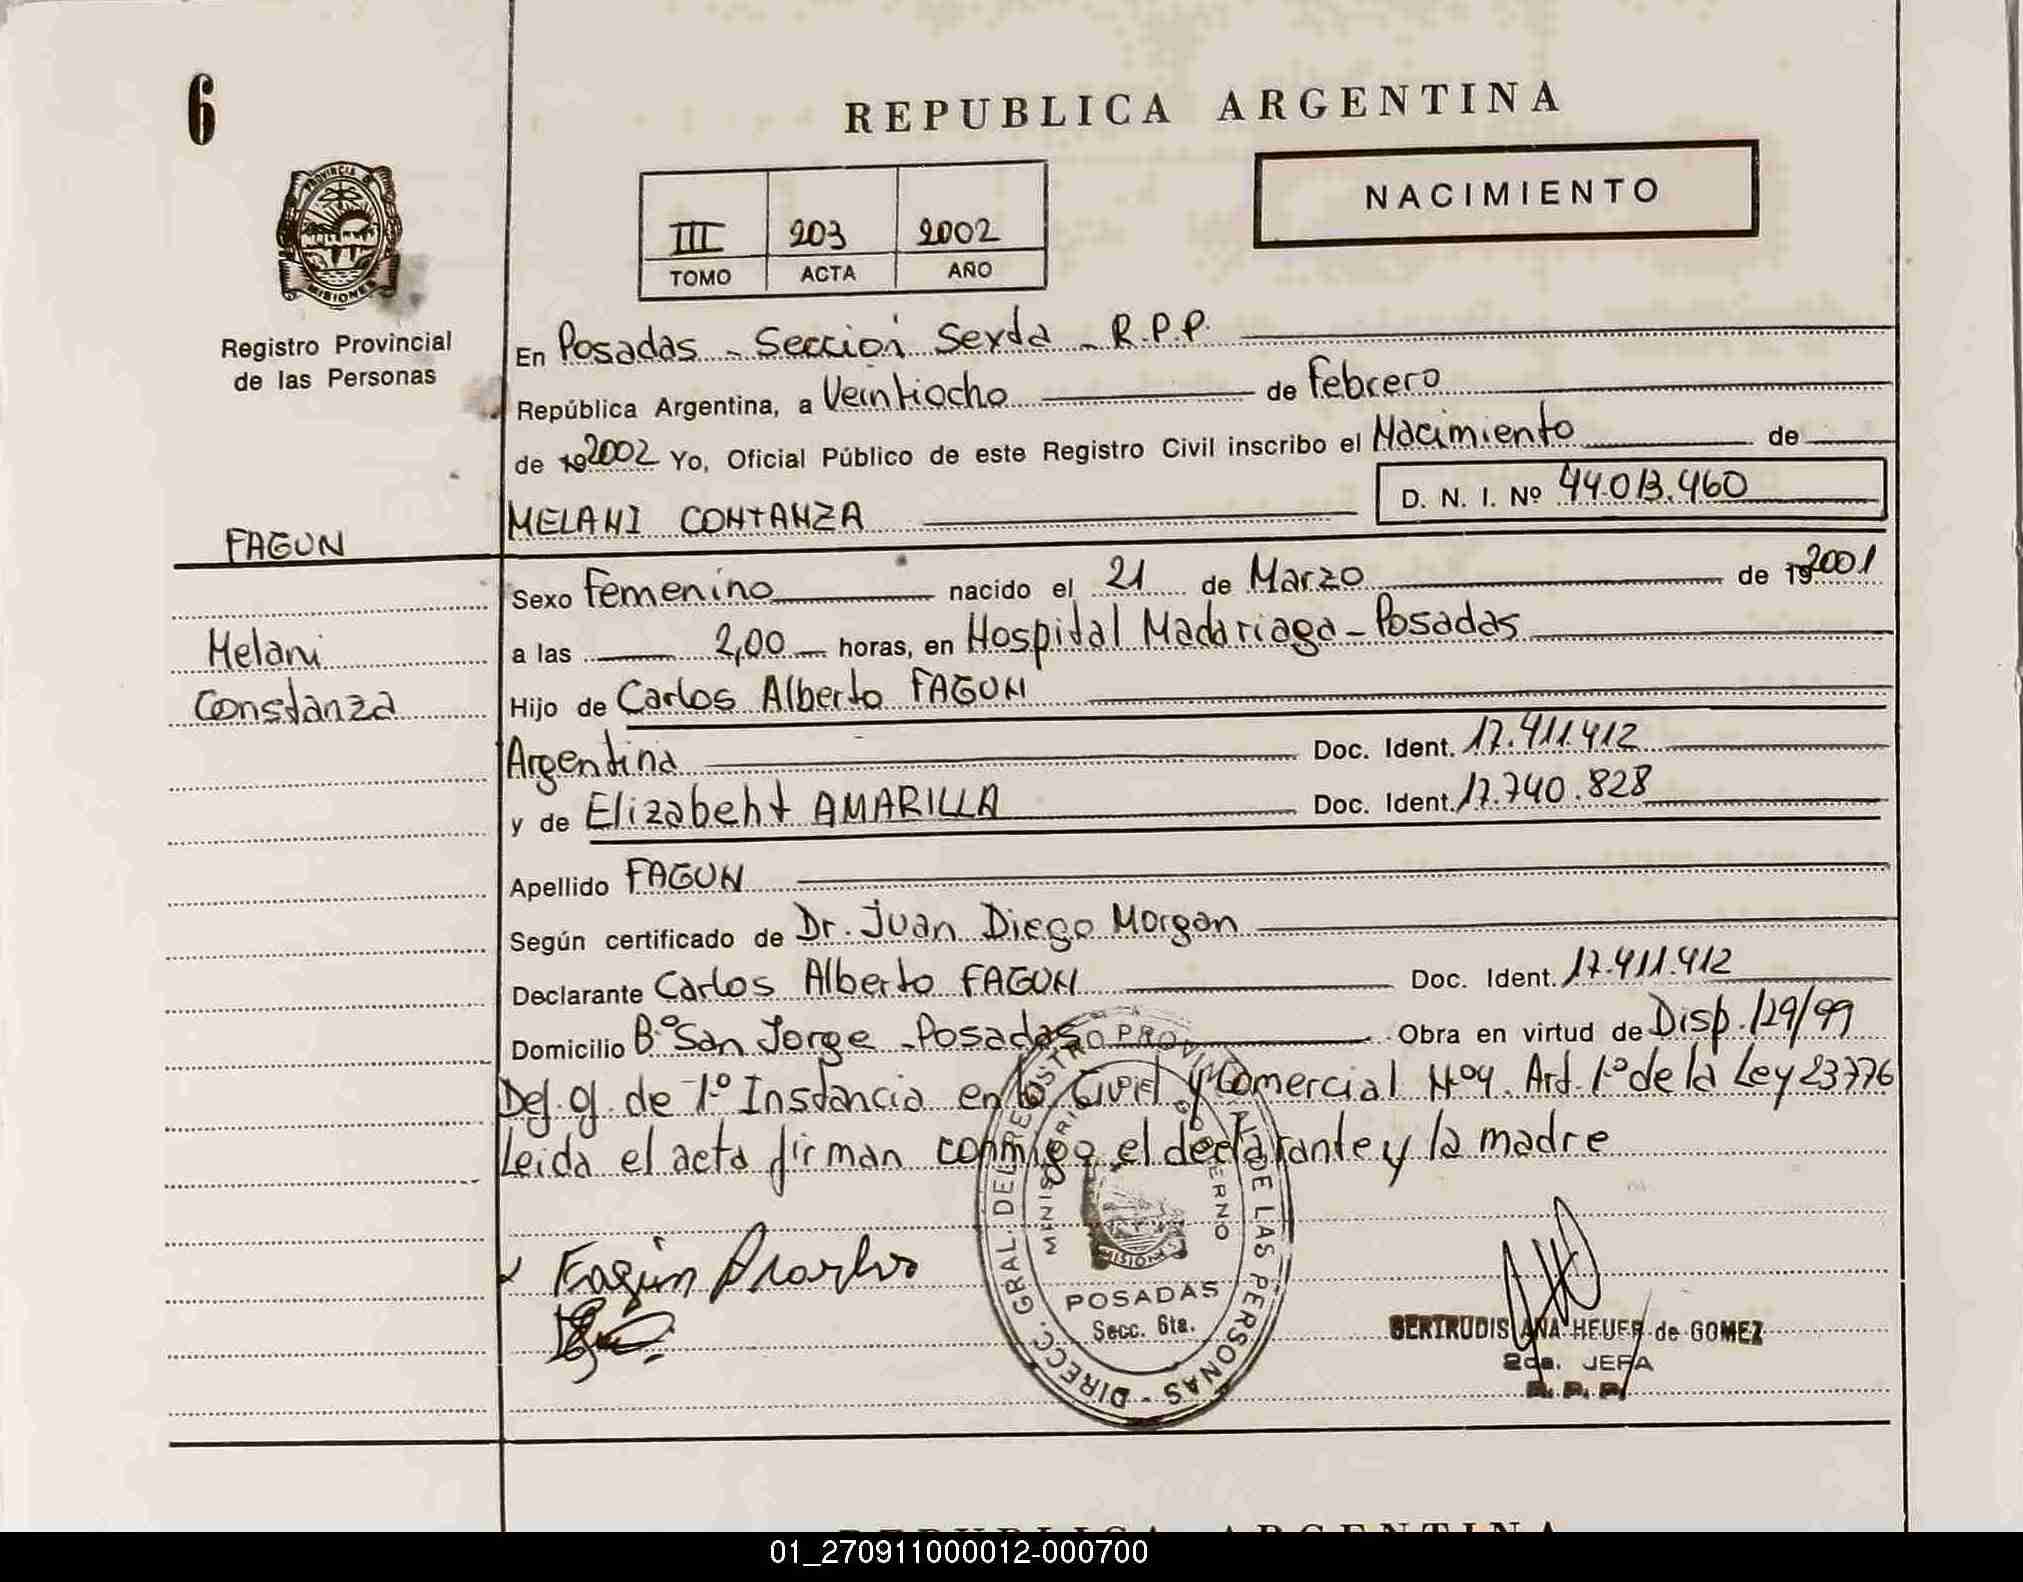 6
REPUBLICA ARGENTINA
NACIMIENTO
III 203 2002
TOMO ACTA AÑO
PROVINCIA DE MISIONES
Registro Provincial
de las Personas
En Posadas - Sección Sexta - R.P.P.
República Argentina, a Veintiocho de Febrero
de 192002 Yo, Oficial Público de este Registro Civil inscribo el Nacimiento de
D. N. I. Nº 44.013.460
MELANI CONTANZA
FAGUN
Sexo Femenino nacido el 21 de Marzo de 192001
Melani
a las 2,00 horas, en Hospital Madariaga - Posadas
Constanza
Hijo de Carlos Alberto FAGUN
Argentina Doc. Ident. 17.411.412
y de Elizabeht AMARILLA Doc. Ident. 17.740.828
Apellido FAGUN
Según certificado de Dr. Juan Diego Morgan
Declarante Carlos Alberto FAGUN Doc. Ident. 17.411.412
Domicilio Bº San Jorge - Posadas Obra en virtud de Disp. 129/99
de 1º Instancia en lo Civil y Comercial Nº4. Art. 1º de la Ley 23776
Leida el acta firman conmigo el declarante y la madre
Fagún
DIRECC. GRAL. DEL REGISTRO PROVINCIAL DE LAS PERSONAS
MINISTERIO DE GOBIERNO
MISIONES
POSADAS
Secc. 6ta.
GERTRUDIS ANA HEUER de GOMEZ
2da. JEFA
R. P. P.
REPUBLICA ARGENTINA
01_270911000012-000700